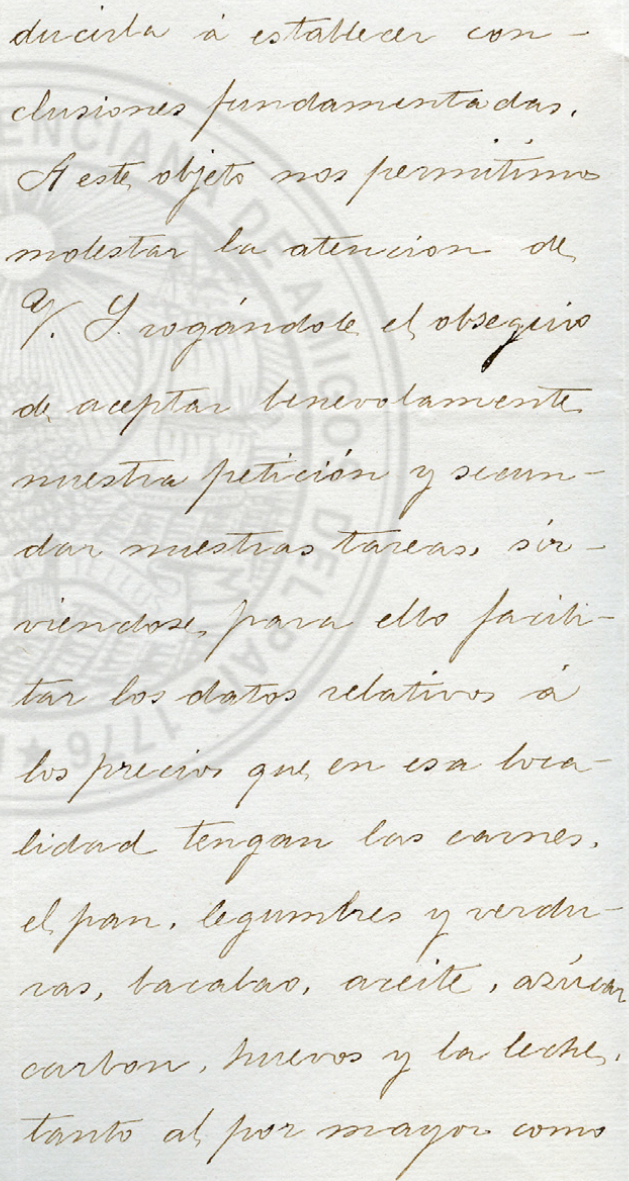 ducirla á establecer con-
clusiones fundamentadas.
A este objeto nos permitimos
molestar la atencion de
V. S. rogándole el obsequio
de aceptar benevolamente
nuestra petición y secun-
dar nuestras tareas, sir-
viendose para ello facili-
tar los datos relativos á
los precios que en esa loca-
lidad tengan las carnes,
el pan, legumbres y verdu-
ras, bacalao, aceite, azúcar
carbon, huevos y la leche,
tanto al por mayor como
ENCIANA DE AMIGOS DEL PAIS 1776